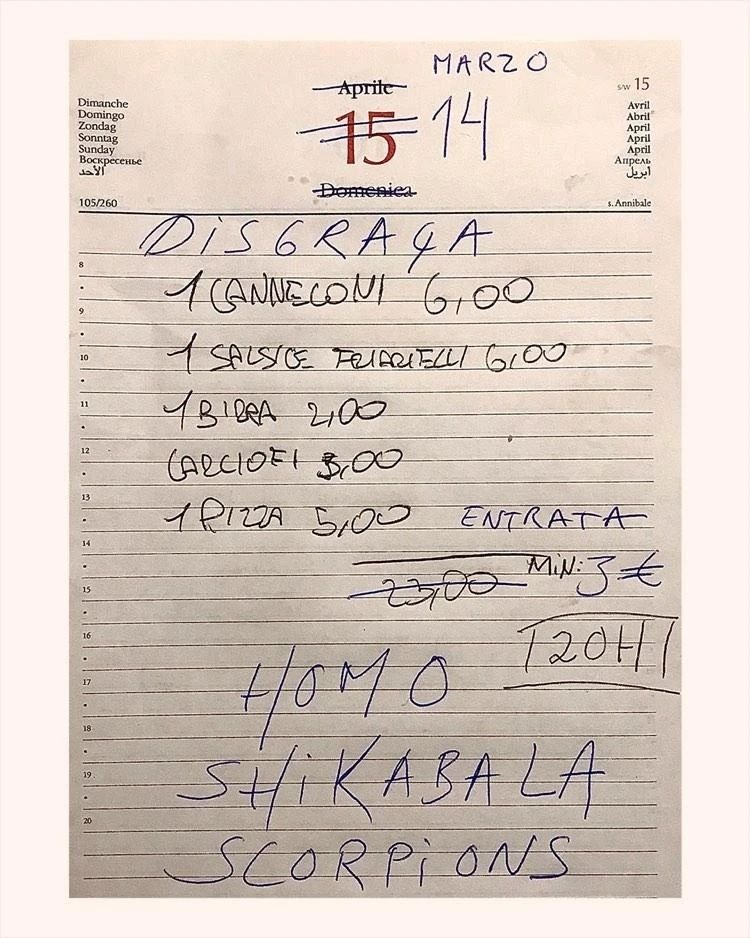 MARZO
Aprile
s/w 15
15 14
Dimanche
Domingo
Zondag
Sonntag
Sunday
Воскресенье
الأحد
Avril
Abril
April
April
April
Апрель
أبريل
Domenica
105/260
s. Annibale
DISGRAÇA
8
1 CANNECONI 6,00
9
10
1 SALSICE FRIARIELLI 6,00
11
1 BIRRA 2,00
12
CARCIOFI 3,00
13
1 PIZZA 5,00 ENTRATA
14
MIN: 3 €
15
23,00
16
20H
17
HOMO
18
SHIKABALA
19
20
SCORPIONS